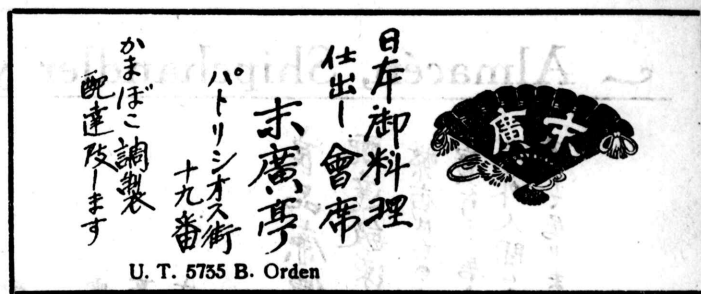 末廣
日本御料理
仕出し會席
末廣亭
パトリシオス街
十九番
かまぼこ調製
配達致します
U. T. 5735 B. Orden